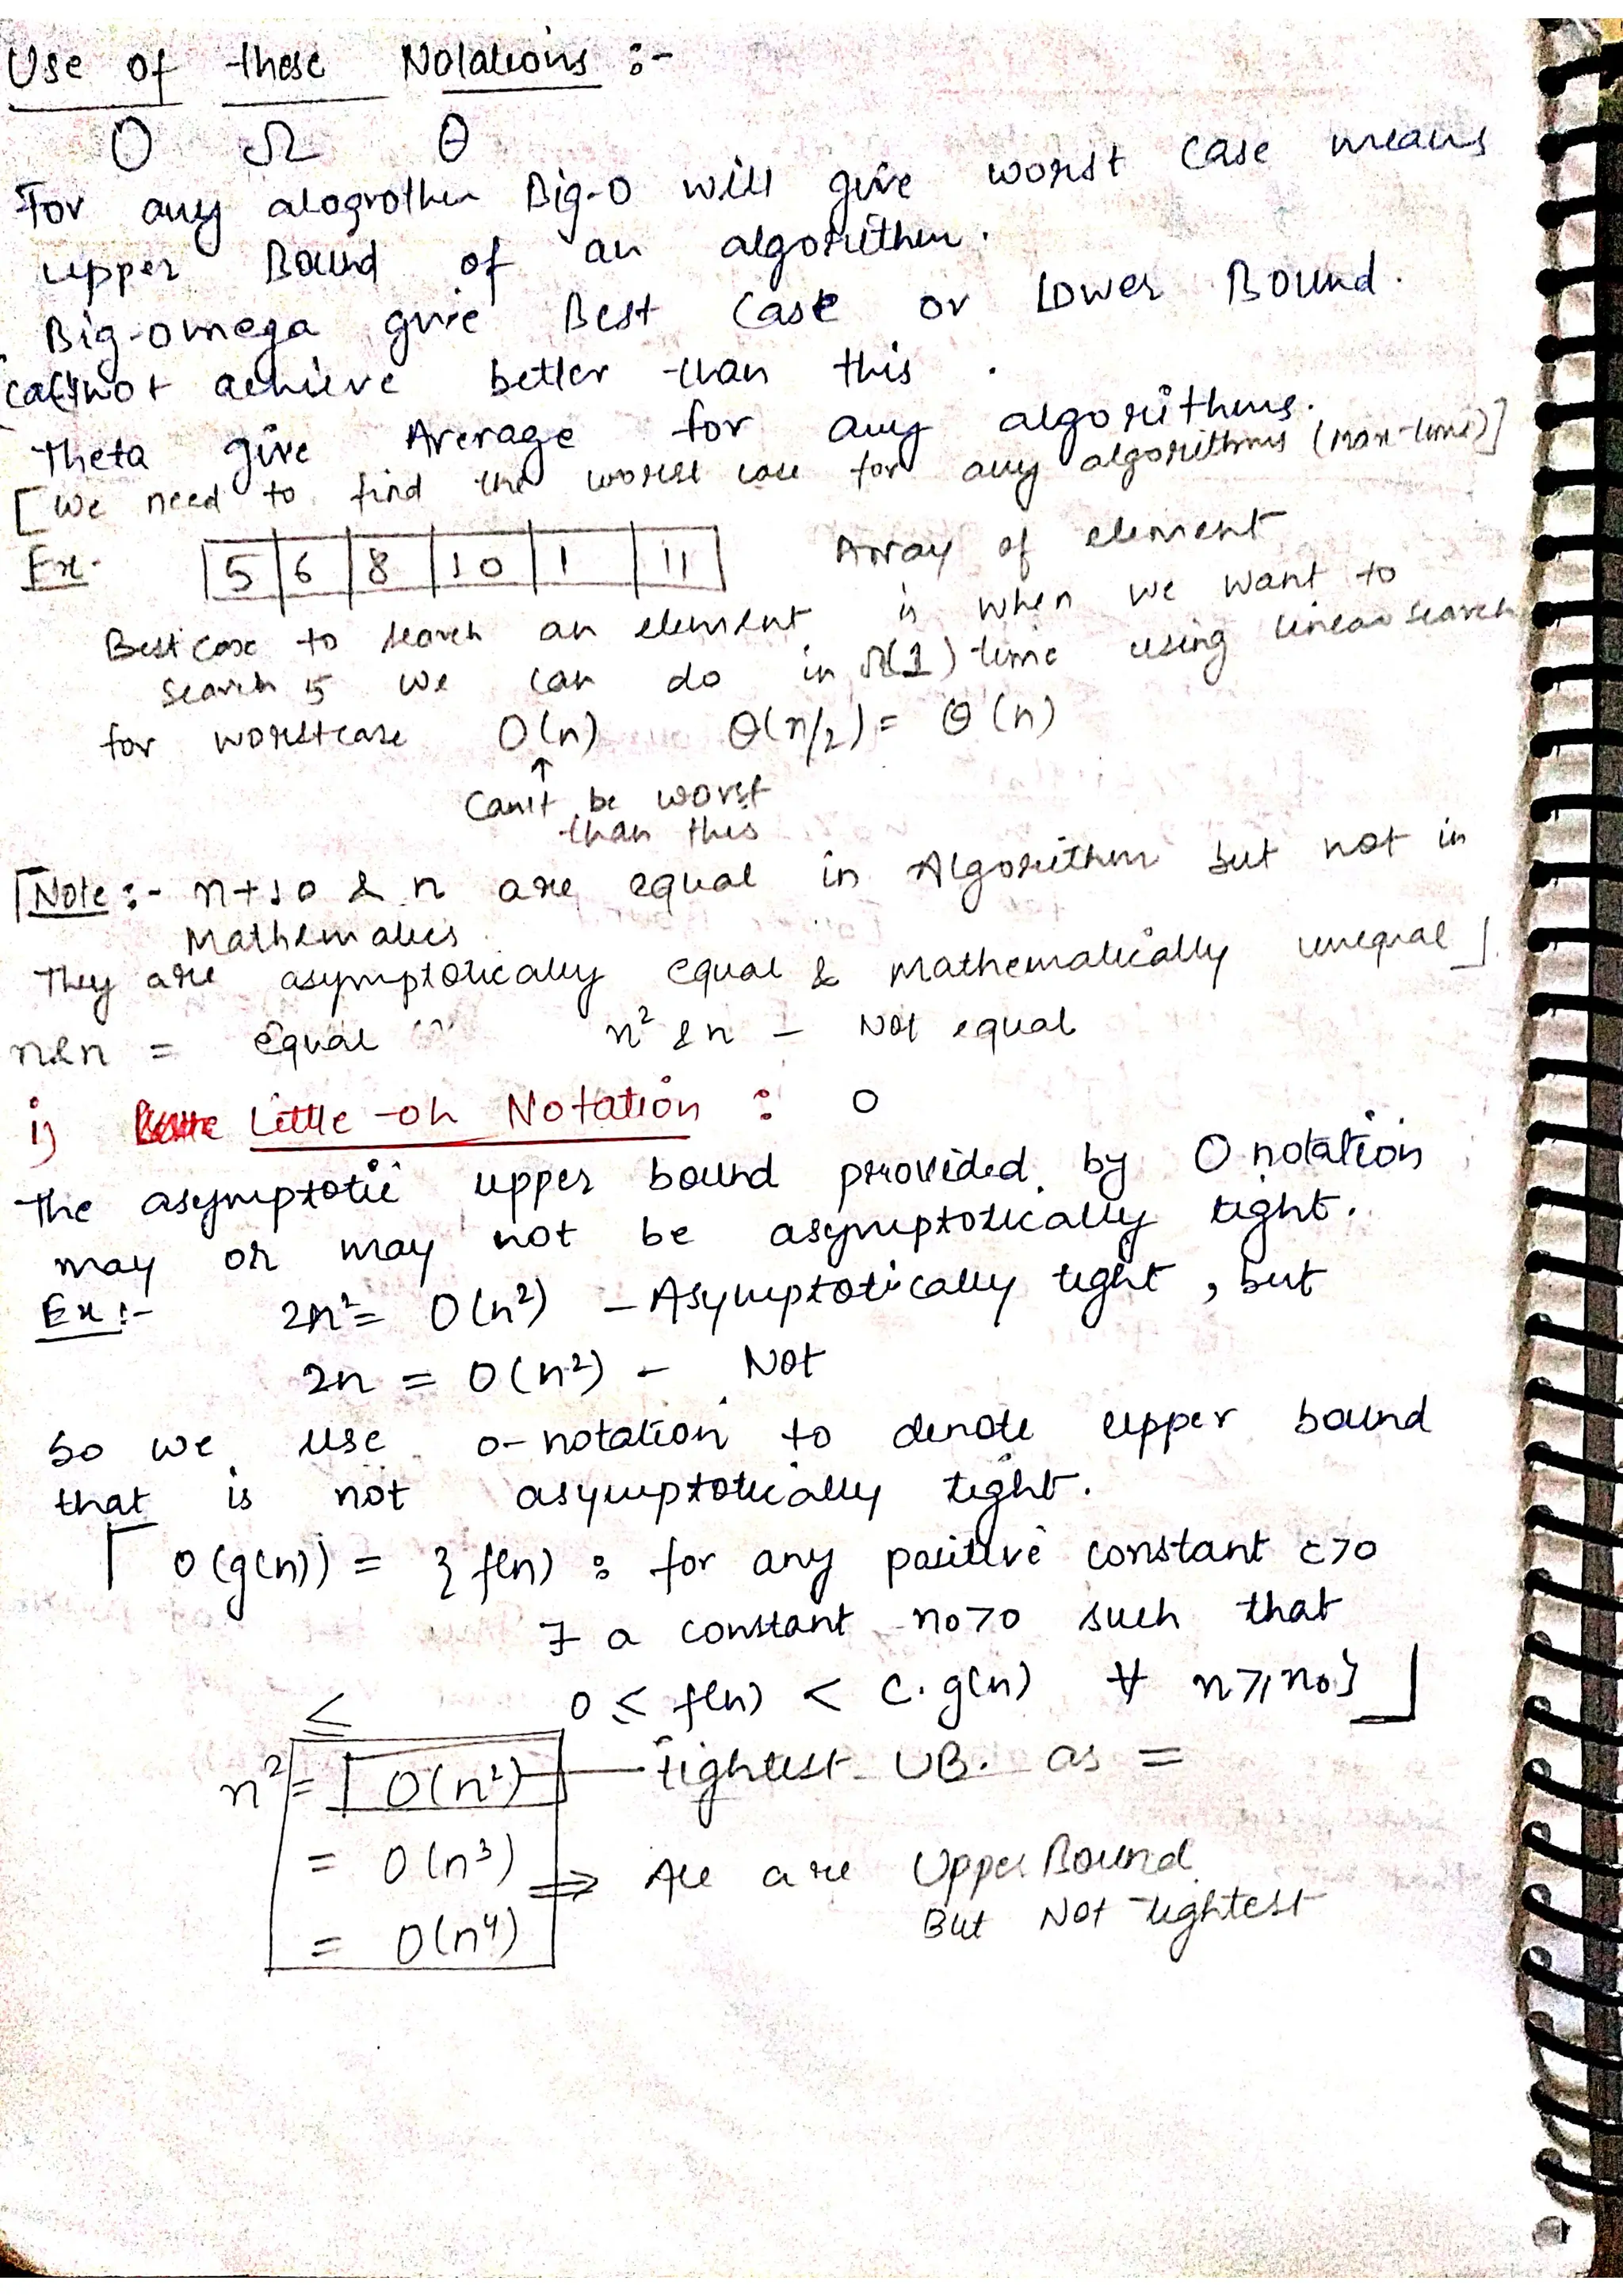 Use of these Notations :-
O Ω θ
For any alogrothm Big-O will give worst case means
upper Bound of an algorithm.
Big-omega give Best Case or Lower Bound.
cannot achieve better than this.
Theta give Average for any algorithms.
[We need to find the worst case for any algorithms (max-time)]
Ex. 5 6 8 10 1 11 Array of element
Best case to search an element is when we want to
search 5 we can do in Ω(1) time using linear search
for worstcase O(n) θ(n/2) = θ(n)
↑
Can't be worst
than this
[Note :- n+10 & n are equal in Algorithm but not in
Mathematics.
They are asymptotically equal & Mathematically unequal]
n&n = equal n² & n - Not equal
i) Little-oh Notation : o
The asymptotic upper bound provided by O notation
may or may not be asymptotically tight.
Ex :- 2n² = O(n²) - Asymptotically tight, but
2n = O(n²) - Not
So we use o-notation to denote upper bound
that is not asymptotically tight.
[o(g(n)) = { f(n) : for any positive constant c>0
∃ a constant n₀>0 such that
0 ≤ f(n) < c.g(n) ∀ n≥n₀}]
≤
n² = O(n²) - tightest UB. as =
= O(n³) ⇒ All are Upper Bound
But Not tightest
= O(n⁴)